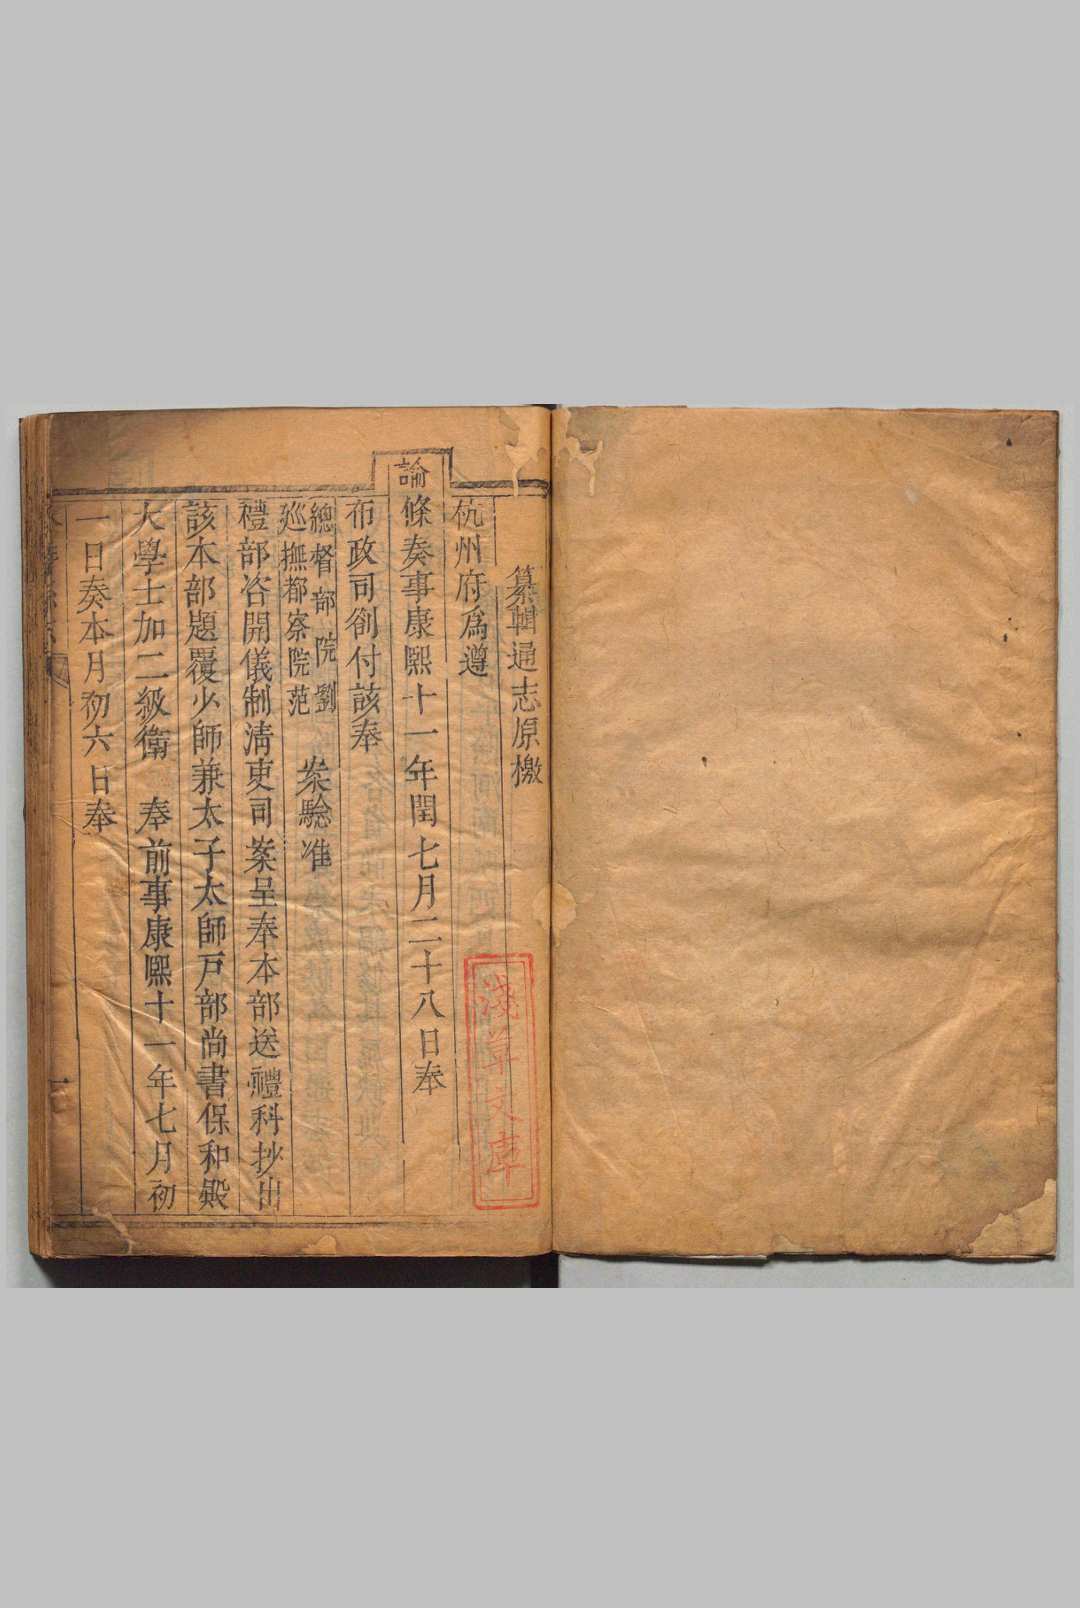 纂輯通志原檄
杭州府爲遵
諭條奏事康熙十一年閏七月二十八日奉
布政司劄付該奉
總督部院劉
巡撫都察院范
案驗准
禮部咨開儀制清吏司案呈奉本部送禮科抄出
該本部題覆少師兼太子太師戸部尚書保和殿
大學士加二級衛 奉前事康熙十一年七月初
一日奏本月初六日奉
一
淺草文庫